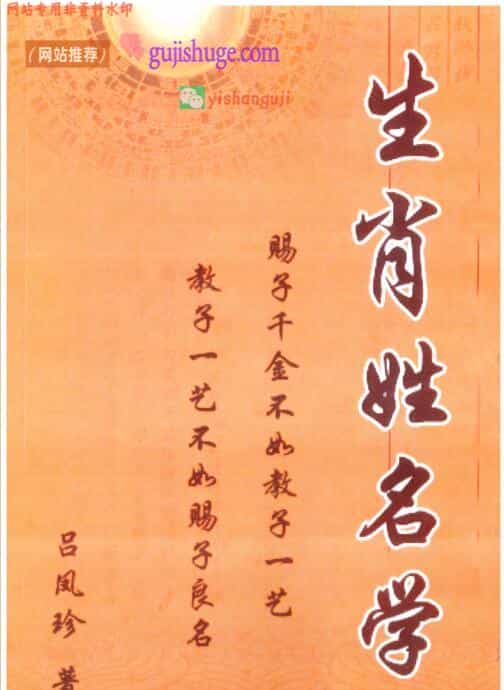 网站专用非资料水印
（网站推荐）
gujishuge.com
yishanguji
生肖姓名学
赐子千金不如教子一艺
教子一艺不如赐子良名
吕凤珍 著